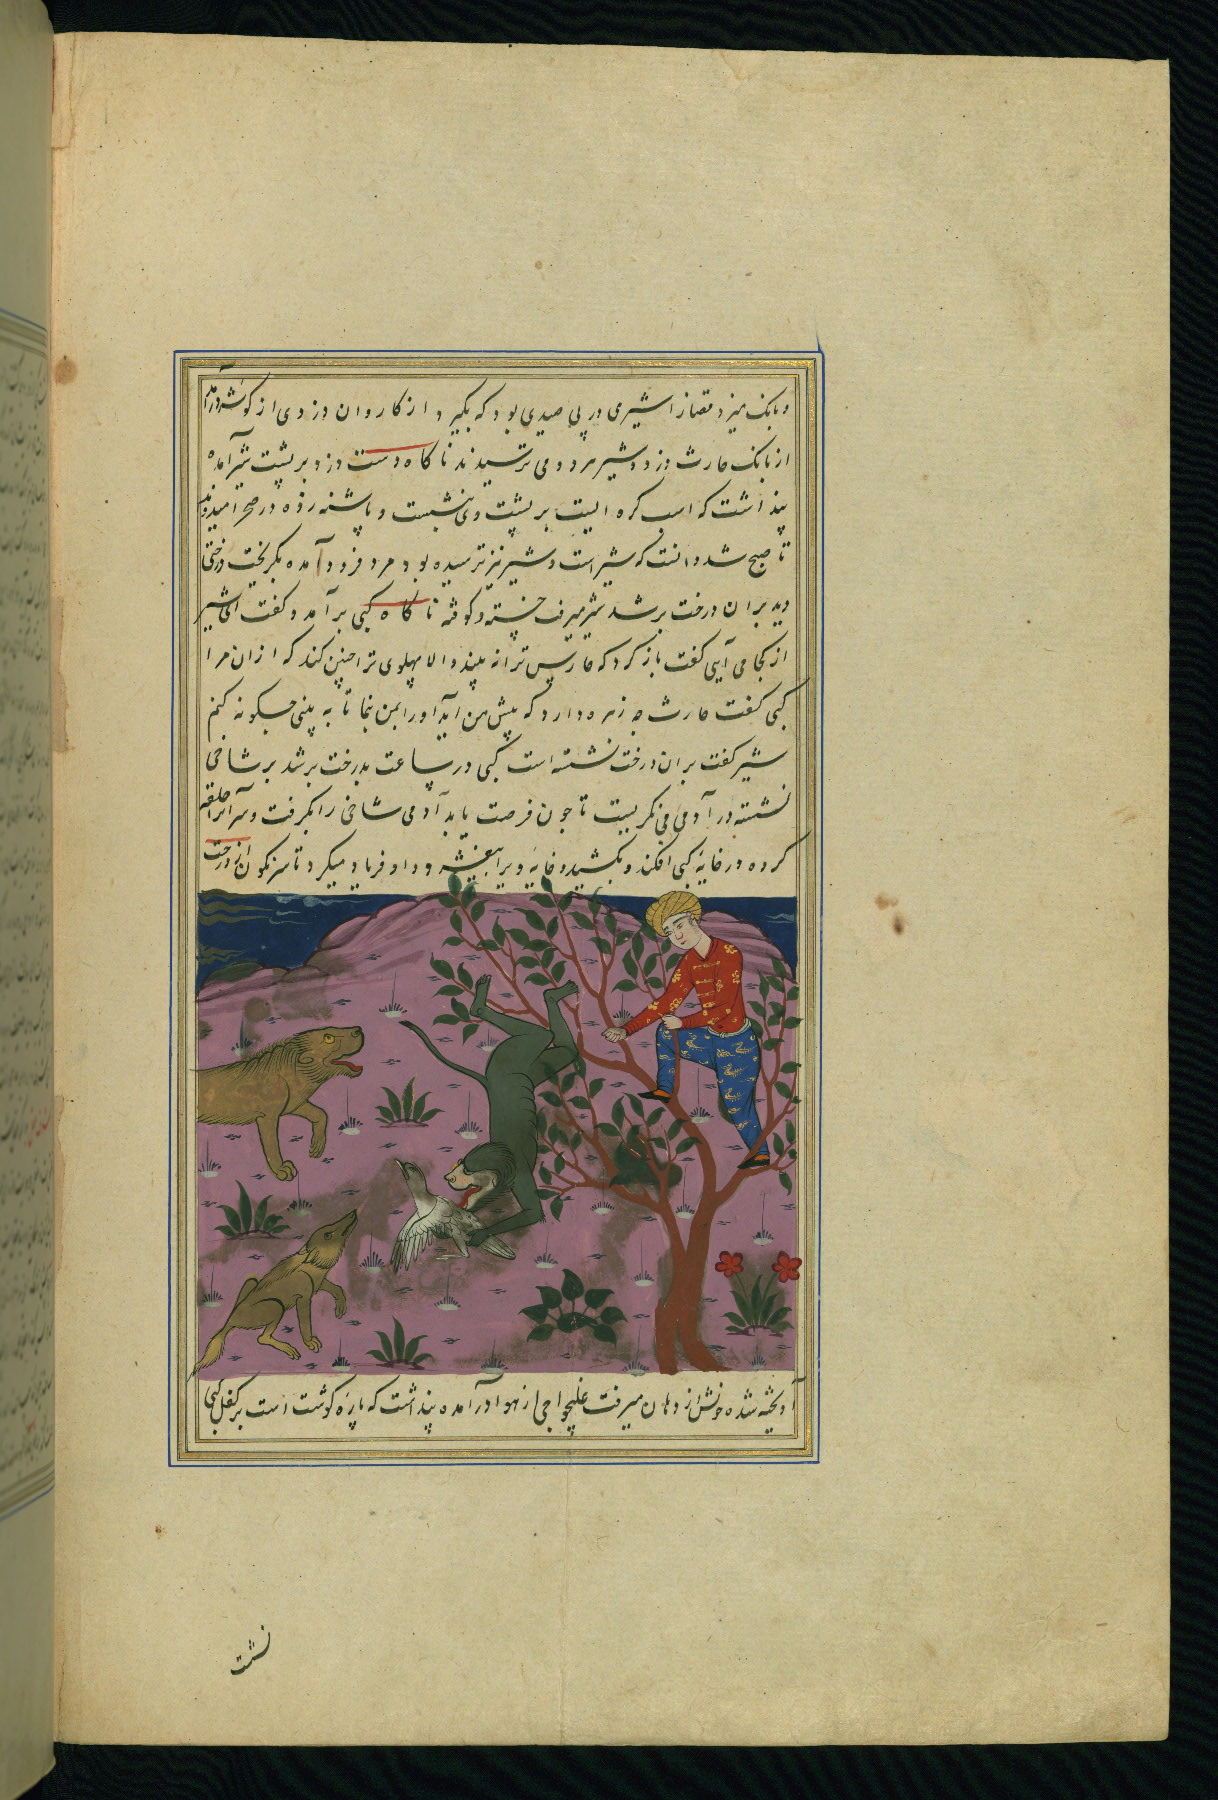 و بانک میزد مقصاز اشیر می در پی صیدی بود که بگیرد از کاروان دزدی از کوشه درآمد
از بانک حارث دزد و شیر هر دو می ترسیدند ناکاه دست دزد بر پشت شیر آمده
پنداشت که اسب کره ایست بر پشت وی بنشست و پاشنه زده در صحرا میدوانید
تا صبح شد دانست که شیر است و شیر نیز ترسیده بود مرد فرود آمده بگریخت درختی
دید بران درخت بر شد شیر میرفت خسته و کوفته ناکاه کپی برآمد و کفت ای شیر
از کجا می آیی کفت باز کرد که حارس ترا نه بیند والا پهلوی ترا چنین کند که ازان مرا
کپی کفت حارث چه زهره دارد که پیش من آید او را بمن بنما تا به بینی چکونه کنم
شیر کفت بران درخت نشسته است کپی در ساعت بدرخت بر شد بر شاخی
نشسته در آدمی می نکریست تا چون فرصت یابد آدمی شاخی را بکرفت و سر آنرا حلقه
کرده در خایهٔ کپی افکند و بکشید و خایهٔ ویرا و داد و فریاد میکرد تا سرنکون از درخت
آویخته شده خونش از دهان میرفت غلیواجی از هوا درآمده پنداشت که پارهٔ کوشت است بر کفل کپی
نشست